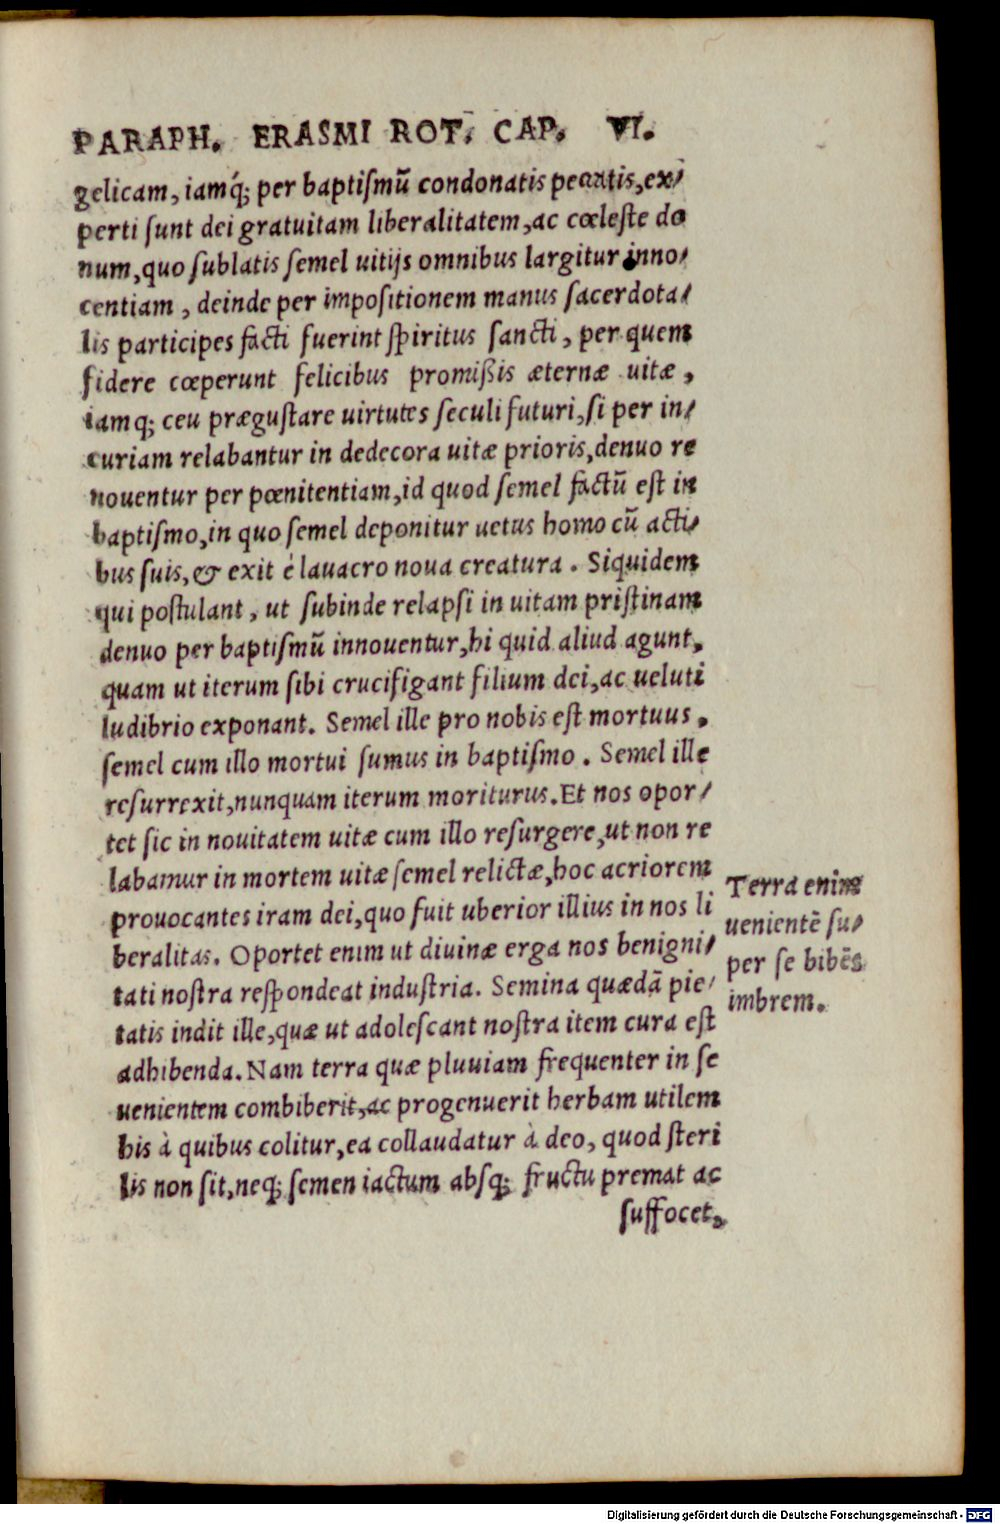 PARAPH. ERASMI ROT. CAP. VI.
gelicam, iamq́; per baptiſmũ condonatis peccatis, ex⸗
perti ſunt dei gratuitam liberalitatem, ac cœleſte do
num, quo ſublatis ſemel uitijs omnibus largitur inno⸗
centiam, deinde per impoſitionem manus ſacerdota⸗
lis participes facti fuerint ſpiritus ſancti, per quem
fidere cœperunt felicibus promiſsis æternæ uitæ,
iamq; ceu præguſtare uirtutes ſeculi futuri, ſi per in⸗
curiam relabantur in dedecora uitæ prioris, denuo re
nouentur per pœnitentiam, id quod ſemel factũ eſt in
baptiſmo, in quo ſemel deponitur uetus homo cũ acti⸗
bus ſuis, & exit è lauacro noua creatura. Siquidem
qui poſtulant, ut ſubinde relapſi in uitam priſtinam
denuo per baptiſmũ innouentur, hi quid aliud agunt,
quam ut iterum ſibi crucifigant filium dei, ac ueluti
ludibrio exponant. Semel ille pro nobis eſt mortuus,
ſemel cum illo mortui ſumus in baptiſmo. Semel ille
reſurrexit, nunquam iterum moriturus. Et nos opor⸗
tet ſic in nouitatem uitæ cum illo reſurgere, ut non re
labamur in mortem uitæ ſemel relictæ, hoc acriorem
prouocantes iram dei, quo fuit uberior illius in nos li
beralitas. Oportet enim ut diuinæ erga nos benigni⸗
tati noſtra reſpondeat induſtria. Semina quædã pie⸗
tatis indit ille, quæ ut adoleſcant noſtra item cura eſt
adhibenda. Nam terra quæ pluuiam frequenter in ſe
uenientem combiberit, ac progenuerit herbam utilem
his à quibus colitur, ea collaudatur à deo, quod ſteri
lis non ſit, neq; ſemen iactum abſq; fructu premat ac
ſuffocet,
Terra enim
uenientẽ ſu⸗
per ſe bibẽs
imbrem.
Digitalisierung gefördert durch die Deutsche Forschungsgemeinschaft - DFG